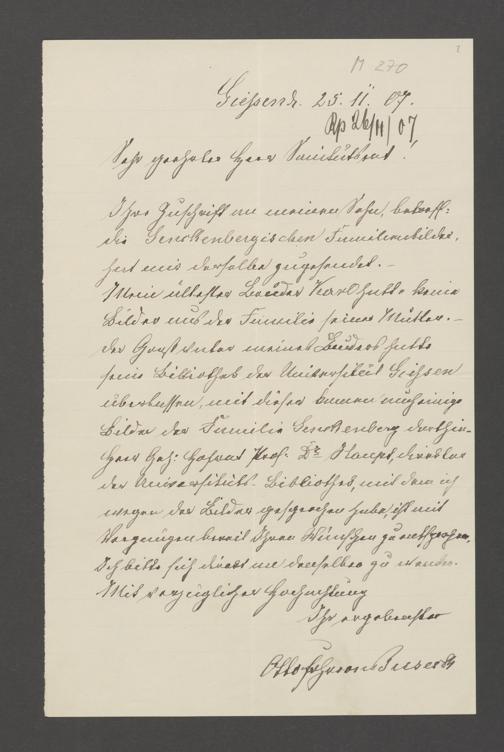 M 270
1
Giessen d. 25. 11. 07.
Rp 26/11/07
Sehr geehrter Herr Sanitätsrat!
Ihre Zuschrift an meinen Sohn, betreff:
die Senckenbergischen Familienbilder,
hat mir derselbe zugesendet. –
Mein ältester Bruder Karl hatte keine
Bilder aus der Familie seiner Mutter. –
der Grosvater meines Bruders hatte
seine Bibliothek der Universität Giessen
überlassen, mit dieser kamen auch einige
Bilder der Familie Senckenberg dorthin.
Herr Geh: Hofrat Prof. Dr Haupt, direktor
der Universitäts-Bibliothek, mit dem ich
wegen der Bilder gesprochen habe, ist mit
Vergnügen bereit Ihren Wünschen zu entsprechen,
Ich bitte sich direct an denselben zu wenden.
Mit vorzüglicher Hochachtung
Ihr ergebenster
Otto Frhr von Buseck